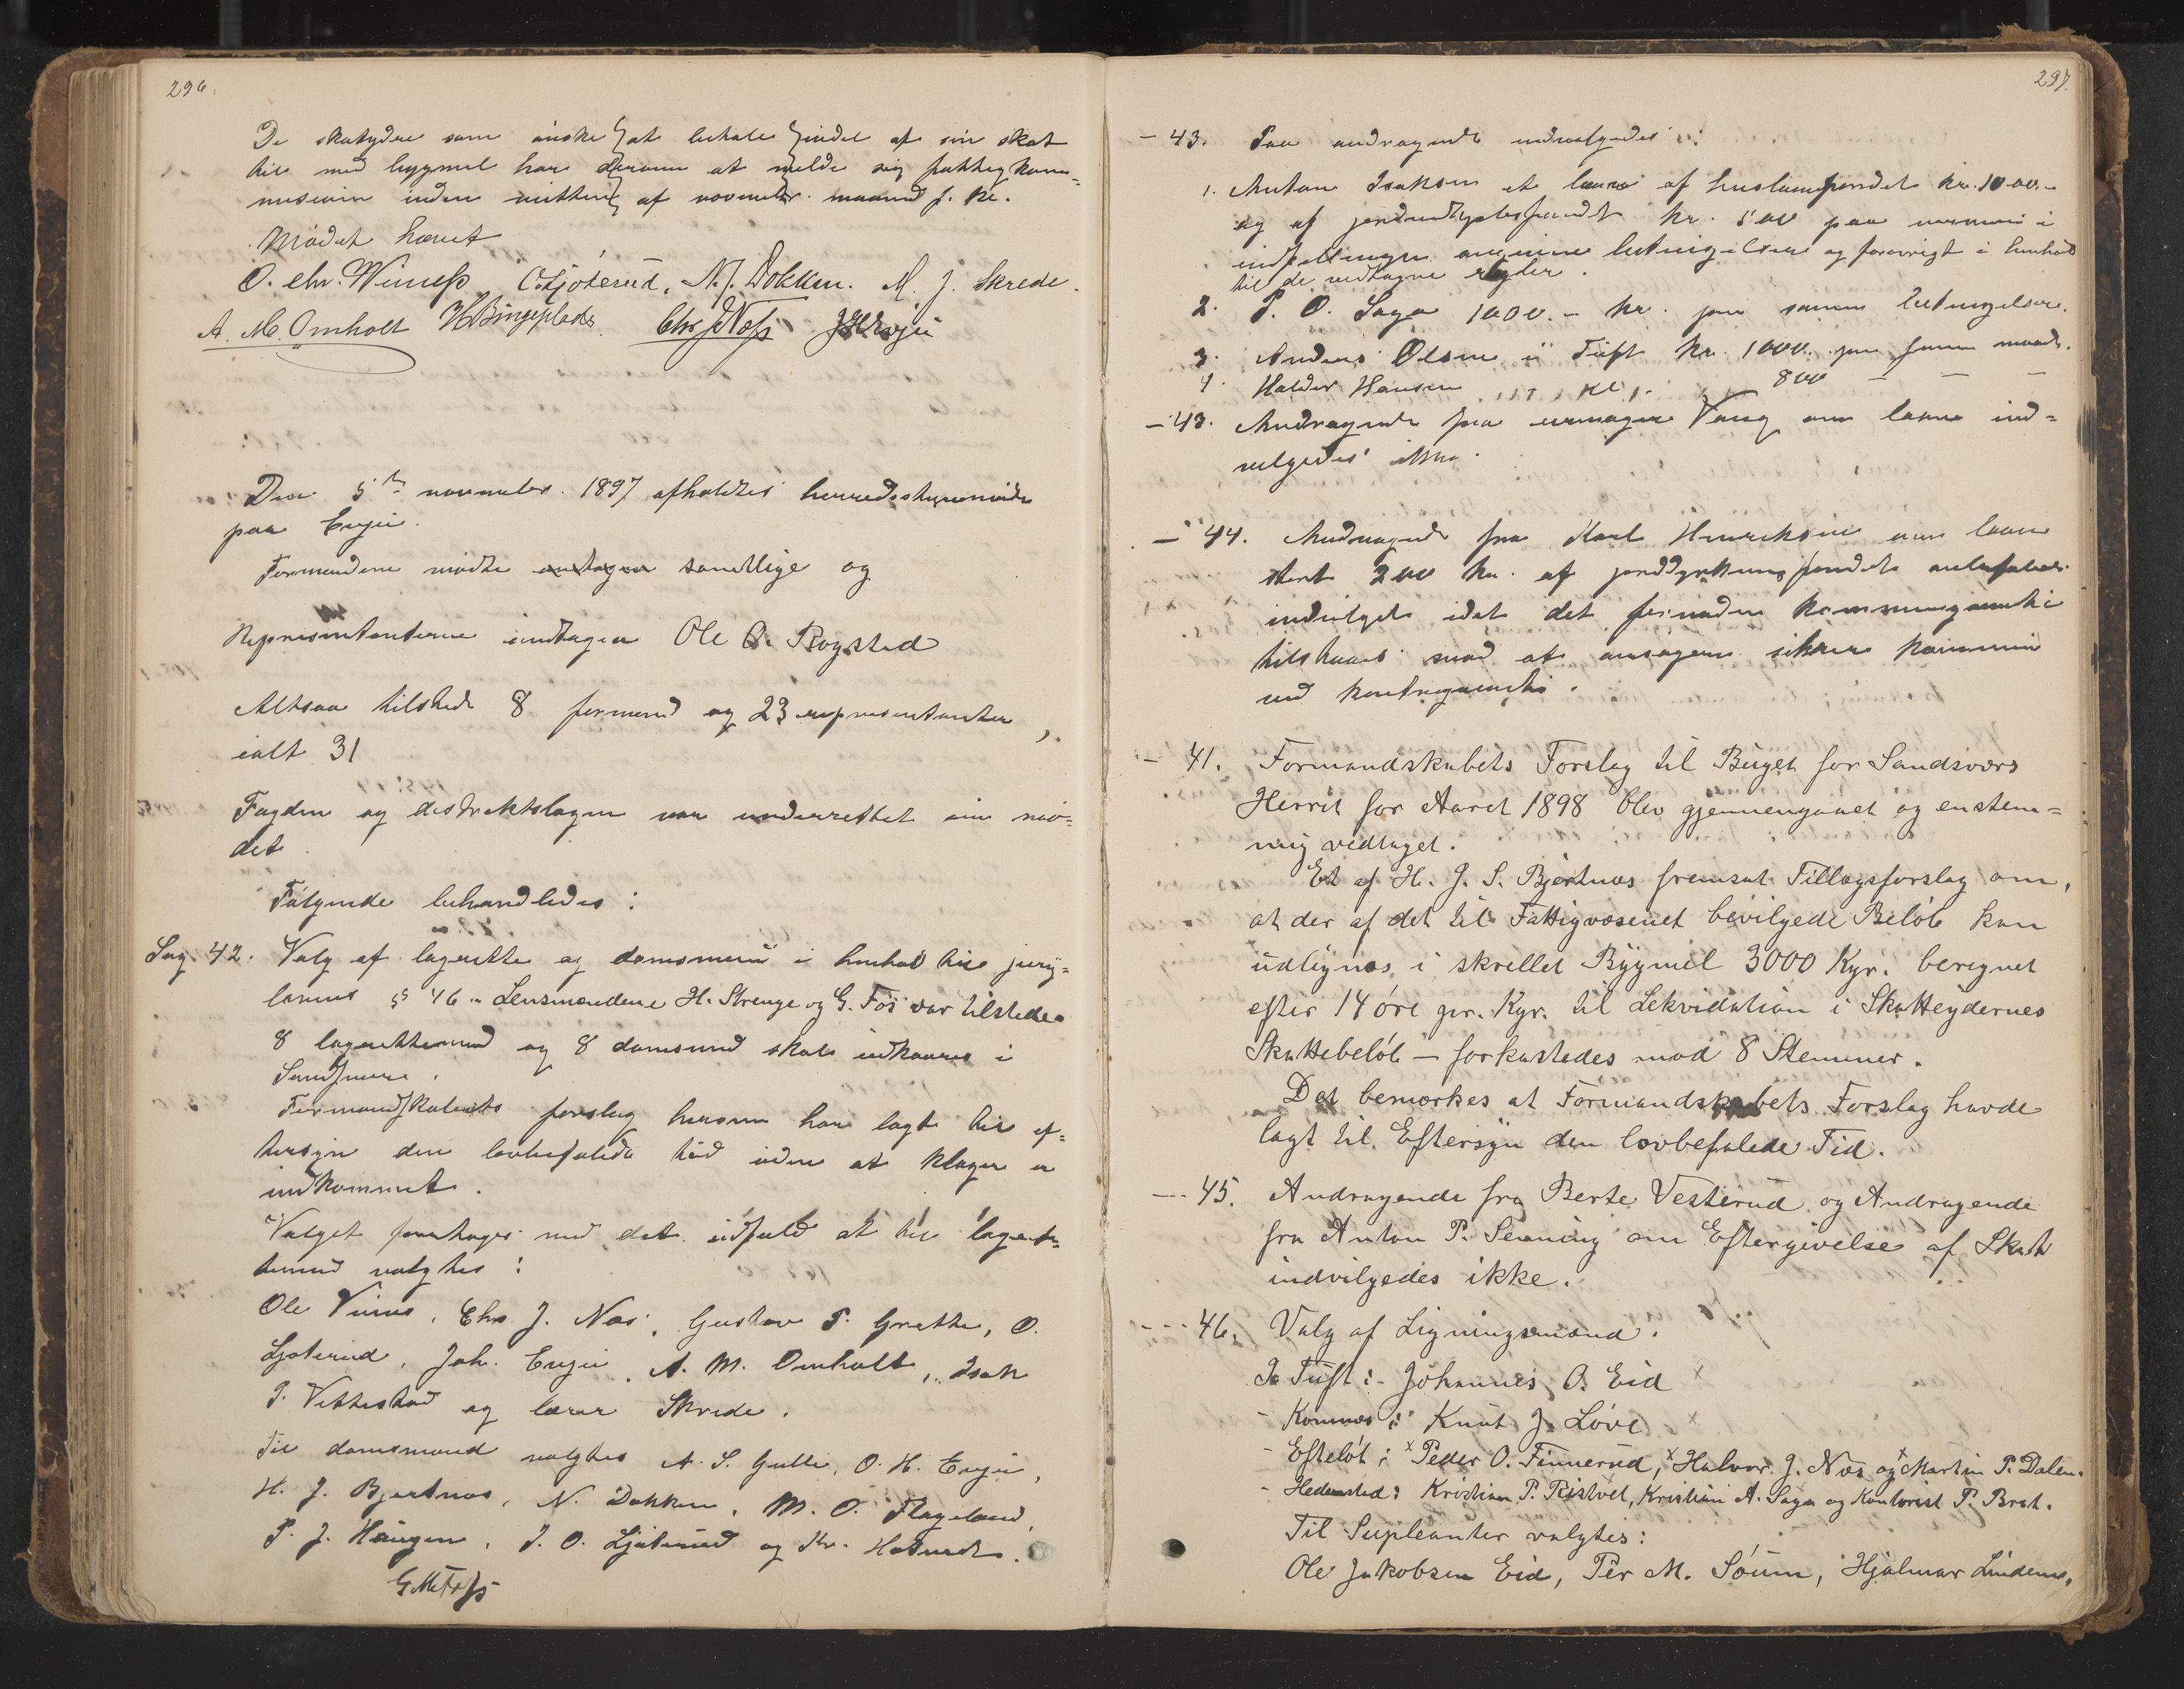 296.
De skatydere som ønske at betale endel af sin skat
til med bygmel har derom at melde sig fattigkom=
misionen inden midten af november maaned f. kl.
Mødet hævet
O. Chr. Winnes O. Ljøterud. N. J. Dokken. M. J. Skrede.
A. M. Omholt H Bingeplads Chr J Næss
Den 5te november 1897 afholdtes herredsstyremøde
paa Enjer.
Formændene mødte samtlige og
Representanterne undtagen Ole O. Rogstad
Altsaa tilstede 8 formænd og 23 representanter,
ialt 31
Fogden og distriktslægen var underrettet om mø=
det
Følgende behandledes:
Sag 42. Valg af lagrette og domsmænd i henhold til jury=
lovens §§ 46. Lensmændene H. Strenge og G. Fos var tilstede.
8 lagrettemænd og 8 domsmænd skal udkaares i
Sandsværd.
Formandskabets forslag hersom har lagt til ef=
tersyn den lovbefalede tid uden at klager er
indkommet.
Valget foretages med det udfald at til lagret=
temænd valgtes:
Ole Vinnes, Chr. J. Næs, Gustav P. Grette, O.
Ljøterud, Joh. Enjer, A. M. Omholt, Isak
P. Vittestad og lærer Skrede.
Til domsmænd valgtes A. S. Gulli, O. H. Enjer,
H. J. Bjertnæs, N. Dokken, M. O. Flageland,
P. J. Haugen, J. O. Ljøterud og Kr. Hotvedt.
297.
- 43. Paa andragende indvilgedes:
1. Anton Isaksen et laan af huslaanefondet kr. 1000.-
og af jorddyrkningsfondet kr. 500 paa
indstillingen angivne betingelser og forøvrigt i henhold
til de vedtagne regler.
2. P. O. Saga 1000.- kr. paa samme betingelser.
3. Anders Olsen i Tuft kr. 1000. paa samme maade.
4. Haldor Hansen 800 - - -
- 43. Andragende fra urmager Vang om laan ind=
vilgedes ikke.
- 44. Andragende fra Karl Henriksen om laan
stort 200 kr. af jorddyrkningsfondet anbefales
indvilget idet det fornødne kommunegaranti
tilstaaes mod at ansøgeren sikrer kommunen
ved kontragaranti.
- 41. Formandskabets Forslag til Buget for Sandsværs
Herrit for Aaret 1898 blev gjennemgaaet og enstem=
mig vedtaget.
Et af H. J. S. Bjertnæs fremsat Tillægsforslag om,
at der af det til Fattigvæsenet bevilgede Beløb kan
udlignes i skrellet Bygmel 3000 Kgr. beregnet
efter 14 øre pr. Kgr. til Lekvidation i Skatteydernes
Skattebeløb - forkastedes mod 8 Stemmer.
Det bemærkes at Formandskabets Forslag havde
lagt til Eftersyn den lovbefalede Tid.
- 45. Andragende fra Berte Vesterud og Andragende
fra Anton P. Senning om Eftergivelse af Skat
indvilgedes ikke.
- 46. Valg af Ligningsmænd.
I Tuft:- Johannes O. Eid x
- Komnes: Knut J. Løve x
- Efteløt: x Peder O. Finnerud, x Halvor J. Næs og x Martin P. Dalen.
- Hedensted: Kristian P. Ristvet, Kristian A. Saga og Kontorist P. Brat.
Til Supleanter valgtes:
Ole Jakobsen Eid, Per M. Søum, Hjalmar Lindem,